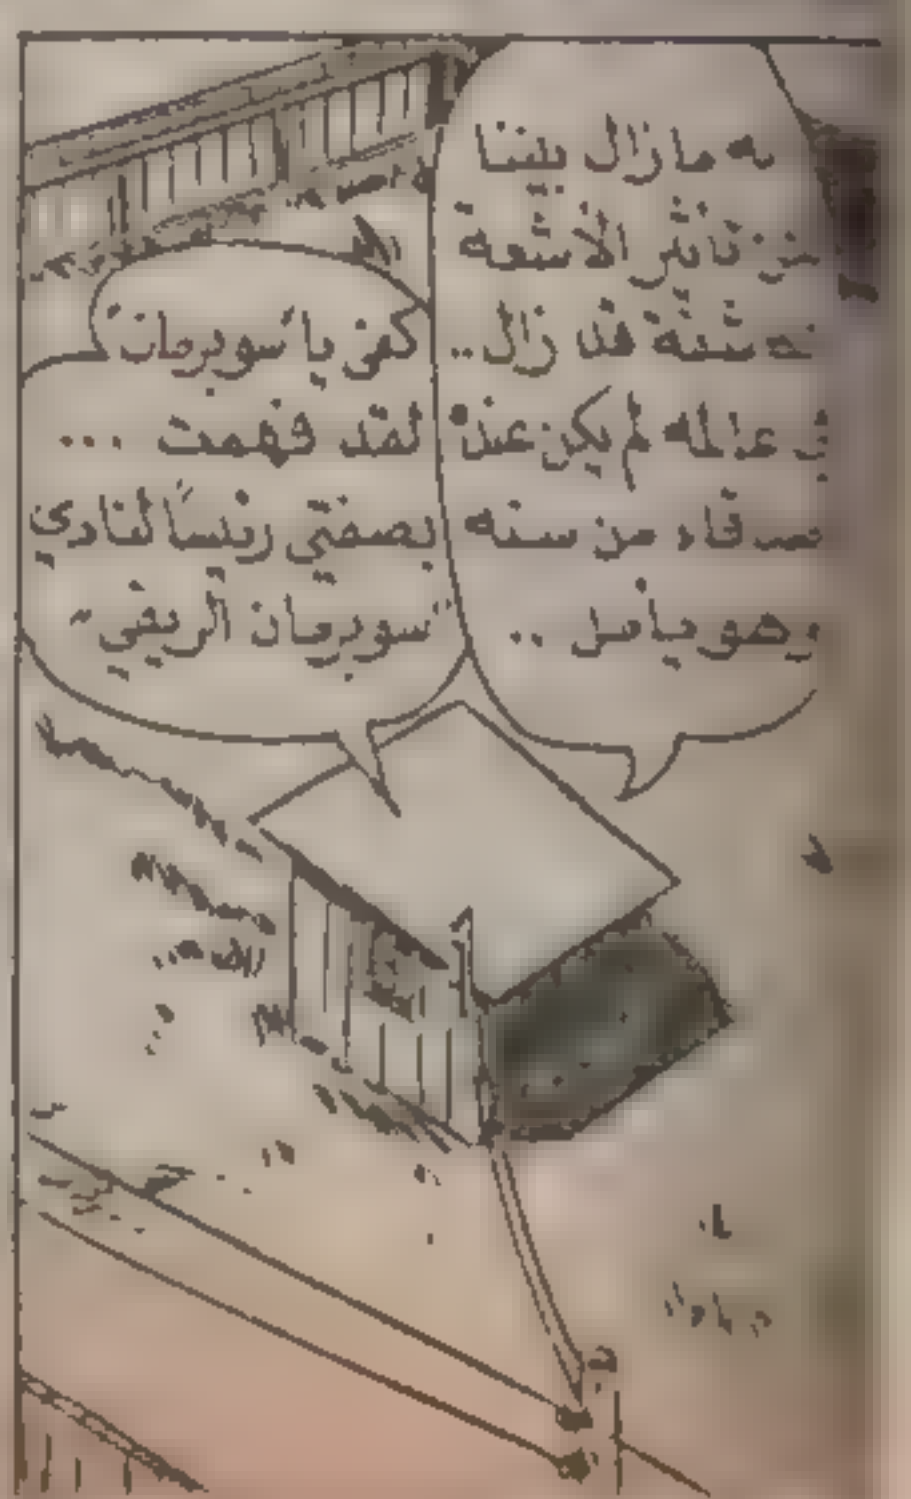 ما زال بيننا
تأثير الأشعة
قد زال..
عالمه لم يكن عنده
من سنه
وهو يأمل ..
كفى يا "سوبرمان"
لقد فهمت ...
بصفتي رئيساً لنادي
"سوبرمان الريفي"